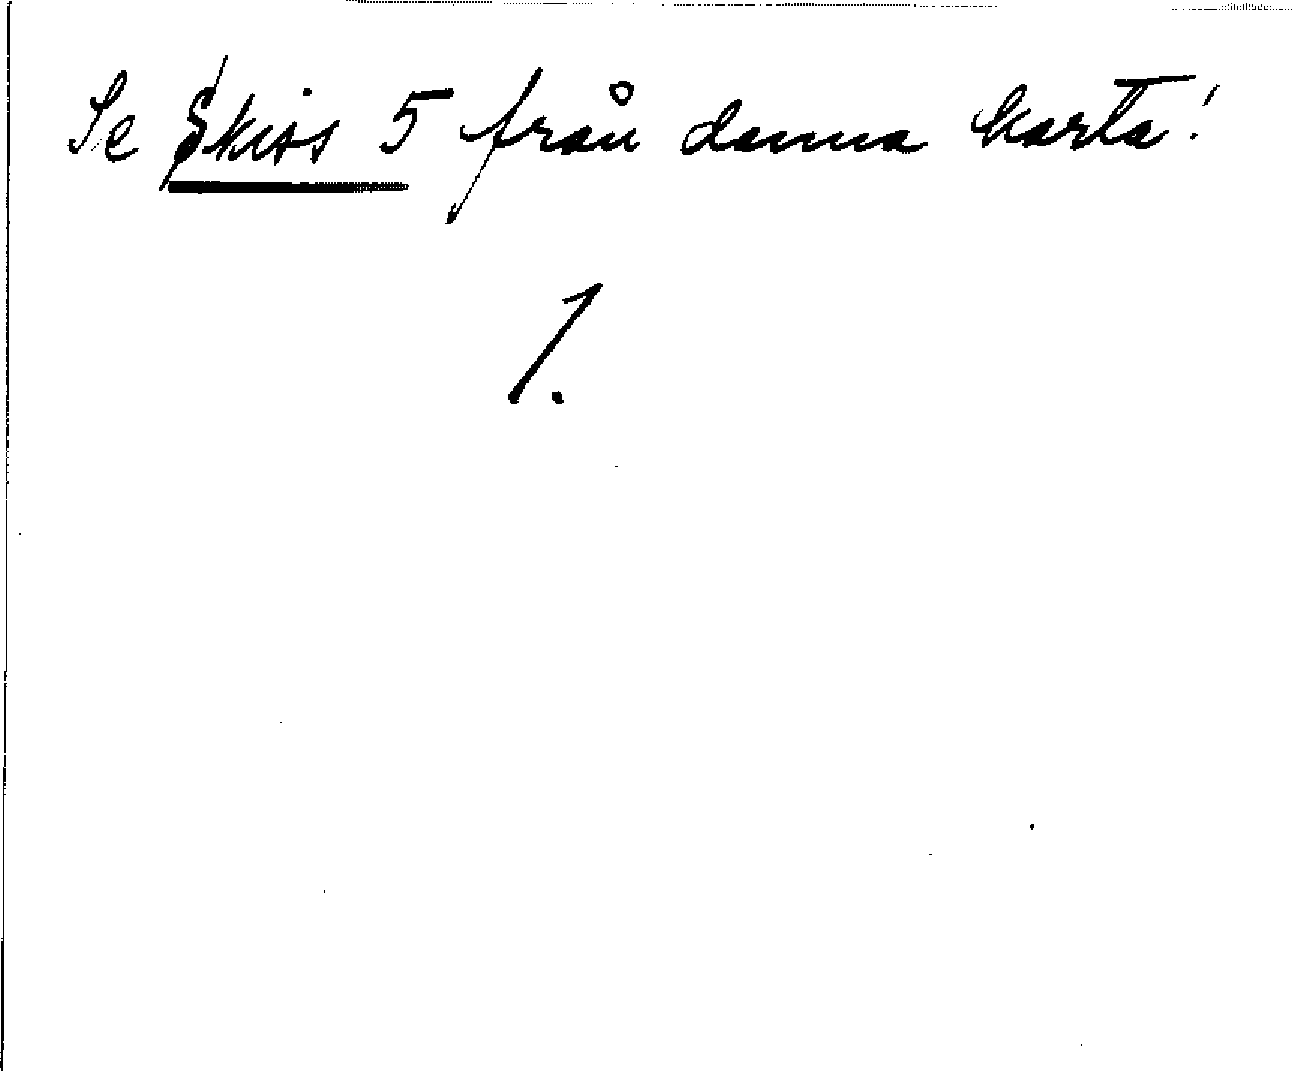 Se Skiss 5 från denna karta!
1.